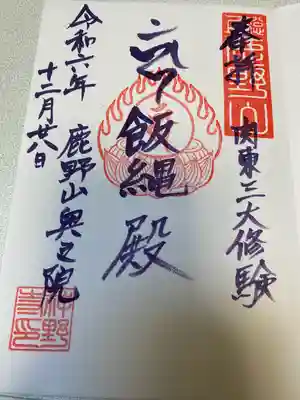 奉拝
関東三大修験
飯縄殿
令和六年
鹿野山奥之院
十二月廿八日
神野寺印